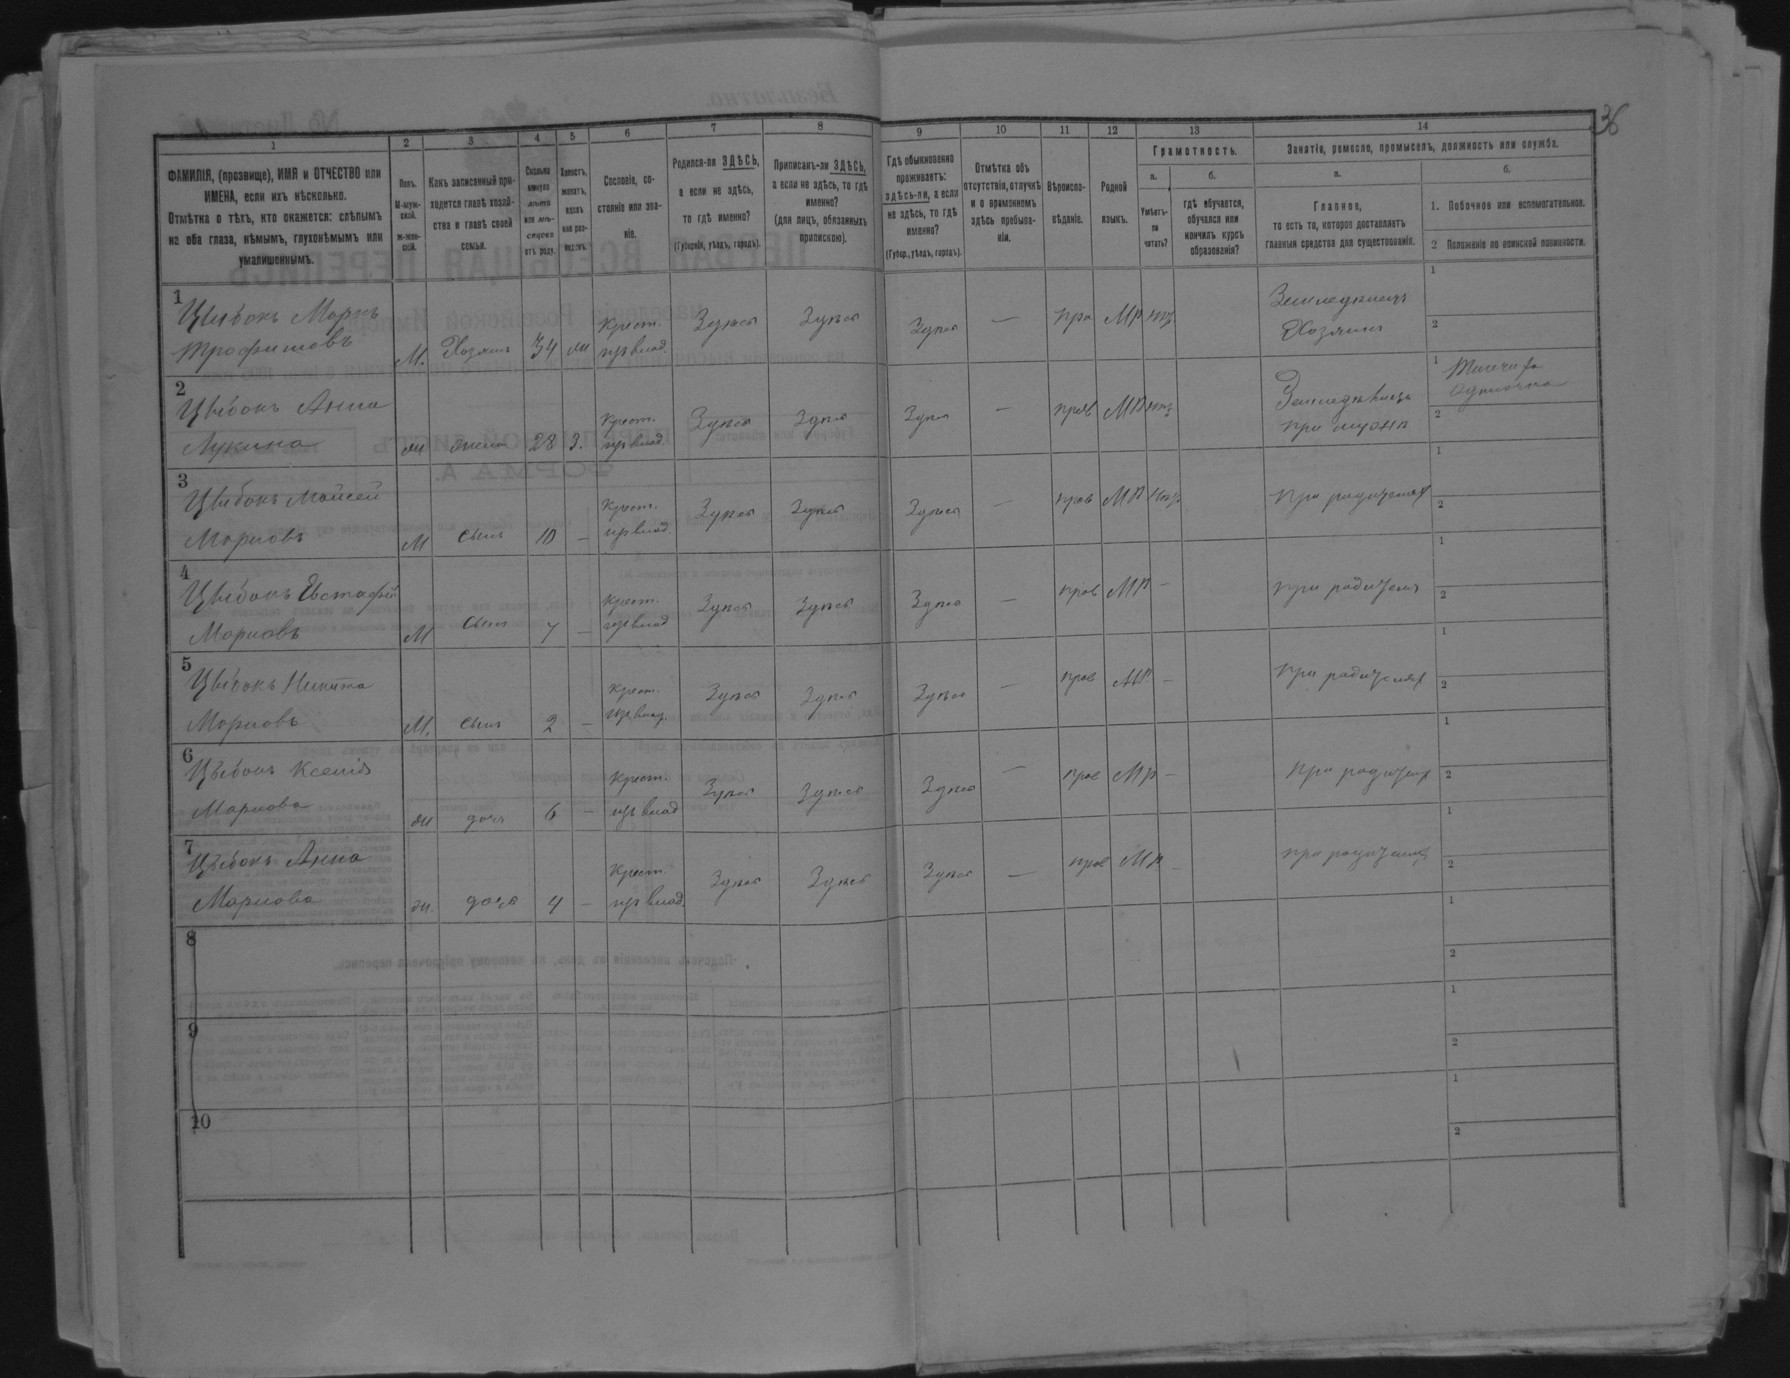 36
1
2
3
4
5
6
7
8
9
10
11
12
13
14
ФАМИЛІЯ, (прозвище), ИМЯ и ОТЧЕСТВО или
ИМЕНА, если ихъ нѣсколько.
Отмѣтка о тѣхъ, кто окажется: слѣпымъ
на оба глаза, нѣмымъ, глухонѣмымъ или
умалишеннымъ.
Полъ.
М-муж-
ской.
ж-жен-
скій.
Какъ записанный при-
ходится главѣ хозяй-
ства и главѣ своей
семьи.
Сколько
минуло
лѣтъ
или мѣ-
сяцевъ
отъ роду.
Холостъ,
женатъ,
вдовъ
или раз-
веденъ.
Сословіе, со-
стояніе или зва-
ніе.
Родился-ли ЗДѢСЬ,
а если не здѣсь,
то гдѣ именно?
(Губернія, уѣздъ, городъ).
Приписанъ-ли ЗДѢСЬ,
а если не здѣсь, то гдѣ
именно?
(для лицъ, обязанныхъ
припискою).
Гдѣ обыкновенно
проживаетъ:
здѣсь-ли, а если
не здѣсь, то гдѣ
именно?
(Губер., уѣздъ, городъ).
Отмѣтка объ
отсутствіи, отлучкѣ
и о временномъ
здѣсь пребыва-
ніи.
Вѣроиспо-
вѣданіе.
Родной
языкъ.
Грамотность.
а.
Умѣетъ-
ли
читать?
б.
гдѣ обучается,
обучался или
кончилъ курсъ
образованія?
Занятіе, ремесло, промыселъ, должность или служба.
а.
Главное,
то есть то, которое доставляетъ
главныя средства для существованія.
б.
1. Побочное или вспомогательное.
2 Положеніе по воинской повинности.
1
Цвибокъ Маркъ
Трофимовъ
М. Хозяинъ 34
Крест.
Здѣсь Здѣсь Здѣсь — МР
Земледѣлецъ
Хозяинъ
1
2
2
Цвибокъ Анна
Лукина
жена 28 З.
Крест.
Здѣсь Здѣсь Здѣсь — прав МР
Земледѣлецъ
при мужѣ
1
2
3
Цвибокъ Моисей
Марковъ
М сынъ 10 —
Крест.
Здѣсь Здѣсь Здѣсь — прав МР
При родителях
1
2
4
Цвибокъ Евстафій
Марковъ
М сынъ 7 —
Крест.
Здѣсь Здѣсь Здѣсь — прав МР —
при родителя
1
2
5
Цвибокъ Никита
Марковъ
М. сынъ 2 —
Крест.
Здѣсь Здѣсь Здѣсь — прав МР —
При родителях
1
2
6
Цвибокъ Ксенія
Маркова
дочь 6 —
Крест.
Здѣсь Здѣсь Здѣсь — прав МР —
При родителях
1
2
7
Цвибокъ Анна
Маркова
дочь 4 —
Крест.
Здѣсь Здѣсь Здѣсь — прав МР —
при родителях
1
2
8
1
2
9
1
2
10
1
2